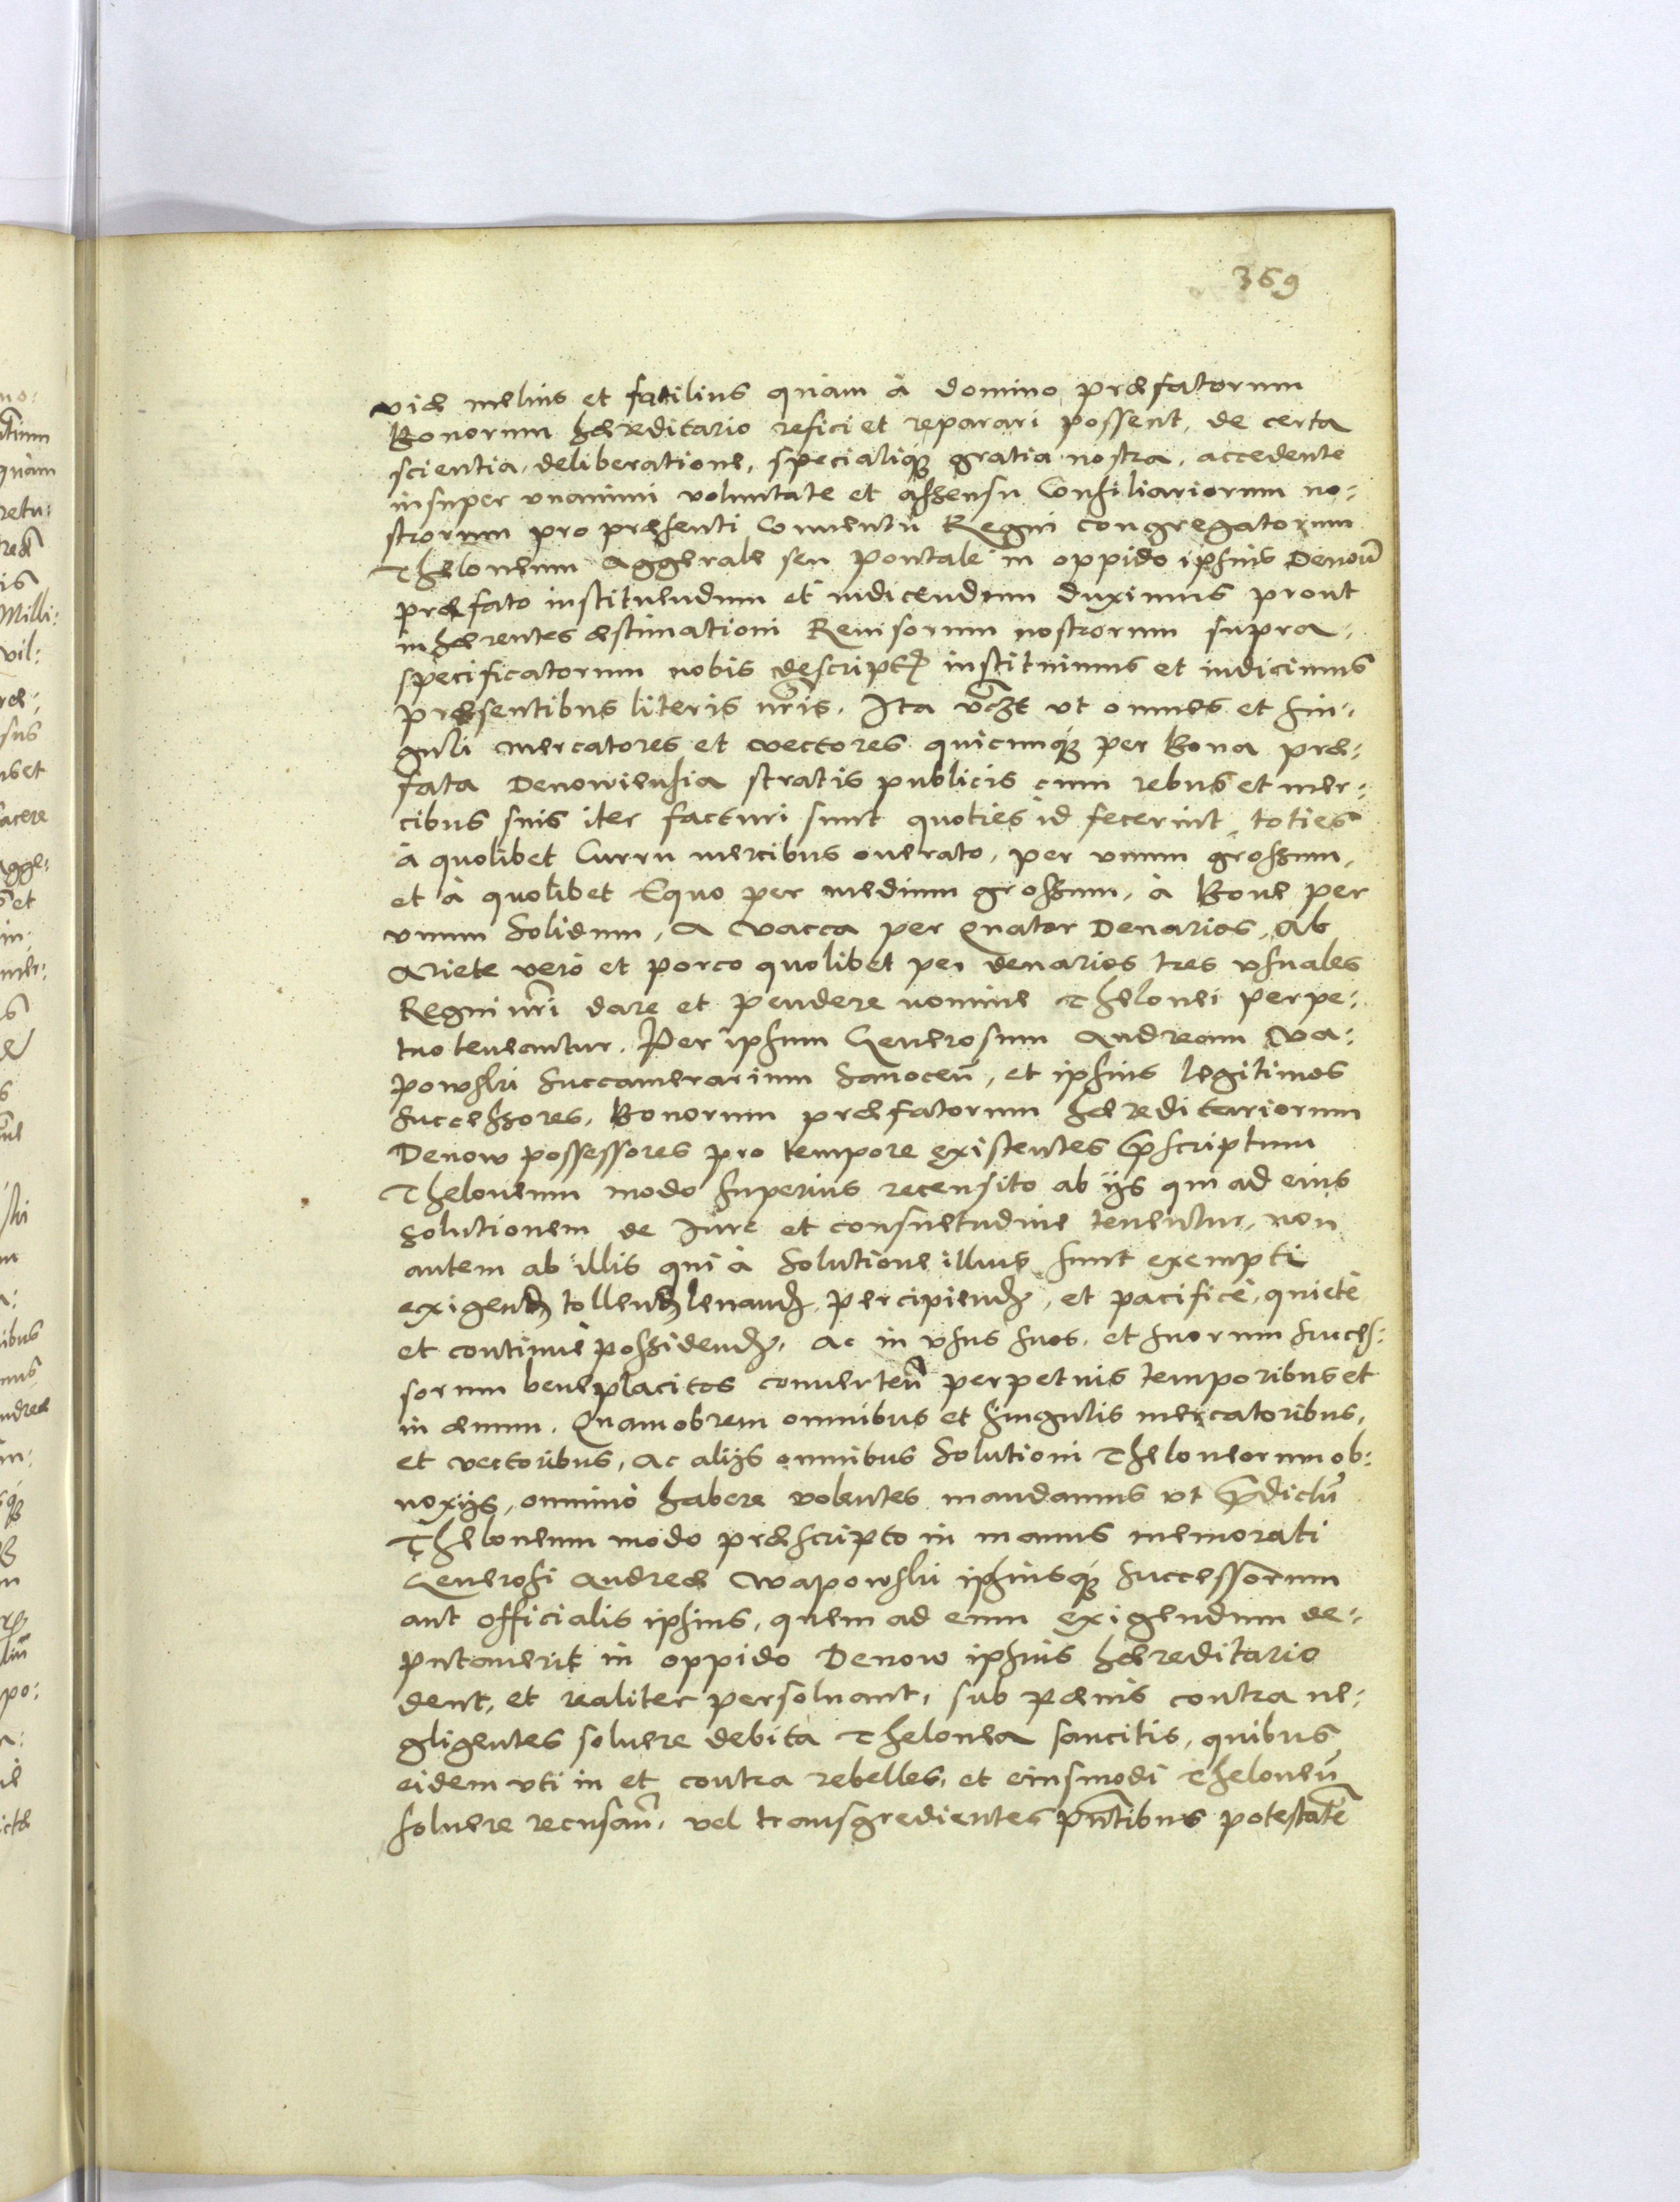 369
viæ melius et facilius quàm à domino præfatorum
Bonorum hæreditario refici et reparari possent, de certa
scientia, deliberatione, specialiq́ꝫ gratia nostra, accedente
insuper vnanimi voluntate et assensu Consiliariorum no:
strorum pro præsenti Conuentu Regni congregatorum
Theloneum Aggerale seu pontale in oppido ipsius Denow̃
præfato instituendum et indicendum duximus prout
inhærentes æstimationi Reuisorum nostrorum supra:
specificatorum nobis descriptꝫ instituimus et indicimus
præsentibus literis nr̃is. Ita vt̃ vt omnes et sin:
guli mercatores et vectores quicunq́ꝫ per Bona præ:
fata Denowiensia stratis publicis cum rebus et mer:
cibus suis iter facturi sunt quoties id fecerint, toties
à quolibet Curru mercibus onerato, per vnum grossum,
et à quolibet Equo per medium grossum, à Boue per
vnum Solidum, A vacca per Quator Denarios, Ab
Ariete verò et porco quolibet per denarios tres vsuales
Regni nr̃i dare et pendere nomine Thelonei perpe:
tuo teneantur. Per ipsum Generosum Andream Wa:
powski Succamerarium Sanoceñ, et ipsius legitimos
successores, Bonorum præfatorum hæreditariorum
Denow possessores pro tempore existentes p̃scriptum
Theloneum modo superius recensito ab ijs qui ad eius
solutionem de Iure et consuetudine tenentur, non
autem ab illis qui à Solutione illius sunt exempti
exigendꝫ tollendꝫ leuandꝫ, percipiendꝫ, et pacificè, quietè
et continuè possidendꝫ, ac in vsus suos, et suorum succes:
sorum beneplacitos conuerteñ perpetuis temporibus et
in æuum. Quamobrem omnibus et singulis mercatoribus,
et vectoribus, ac alijs omnibus Solutioni Theloneorum ob:
noxijs, omninò habere volentes mandamus vt p̃dictũ
Theloneum modo præscripto in manus memorati
Generosi Andreæ Wapowski ipsiusq́ꝫ successorum
aut officialis ipsius, quem ad eum exigendum de:
putauerit in oppido Denow ipsius hæreditario
dent, et realiter persoluant, sub pænis contra ne:
gligentes soluere debita Thelonea sancitis, quibus
eidem vti in et contra rebelles, et eiusmodi Theloneũ
soluere recusañ, vel transgredientes pñtibus potestatẽ